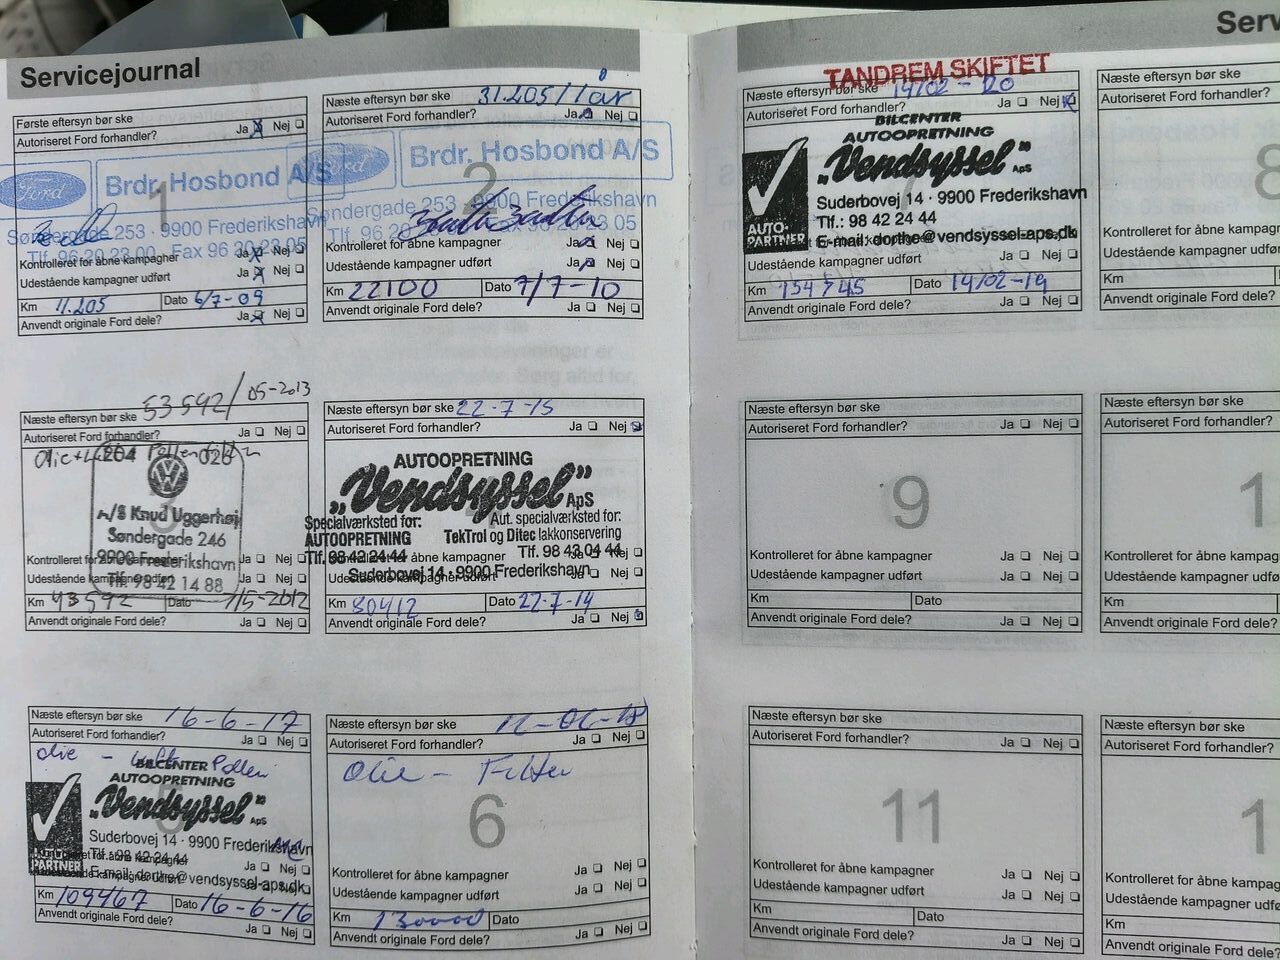 Servicejournal
Første eftersyn bør ske
Autoriseret Ford forhandler? Ja Nej
Ford Brdr. Hosbond A/S
1
Søndergade 253 · 9900 Frederikshavn
Tlf. 96 20 23 00 · Fax 96 20 23 05
Kontrolleret for åbne kampagner Ja Nej
Udestående kampagner udført Ja Nej
Km 11.205 Dato 6/7-09
Anvendt originale Ford dele? Ja Nej
Næste eftersyn bør ske 31.205/1 år
Autoriseret Ford forhandler? Ja Nej
Ford Brdr. Hosbond A/S
2
Søndergade 253 · 9900 Frederikshavn
Tlf. 96 20 23 00 · Fax 96 20 23 05
Kontrolleret for åbne kampagner Ja Nej
Udestående kampagner udført Ja Nej
Km 22100 Dato 7/7-10
Anvendt originale Ford dele? Ja Nej
Næste eftersyn bør ske 53592/05-2013
Autoriseret Ford forhandler? Ja Nej
A/S Knud Uggerhøj
Søndergade 246
9900 Frederikshavn
Tlf. 98 42 14 88
Kontrolleret for åbne kampagner Ja Nej
Udestående kampagner udført Ja Nej
Km 43592 Dato /15-2012
Anvendt originale Ford dele? Ja Nej
Næste eftersyn bør ske 22-7-15
Autoriseret Ford forhandler? Ja Nej
AUTOOPRETNING
„Vendsyssel” ApS
Specialværksted for: Aut. specialværksted for:
AUTOOPRETNING TekTrol og Ditec lakkonservering
Tlf. 98 42 24 44 Tlf. 98 43 04 44
Suderbovej 14 · 9900 Frederikshavn
Kontrolleret for åbne kampagner Ja Nej
Udestående kampagner udført Ja Nej
Km 80412 Dato 22-7-14
Anvendt originale Ford dele? Ja Nej
Næste eftersyn bør ske 16-6-17
Autoriseret Ford forhandler? Ja Nej
olie - Luft Pollen
BILCENTER
AUTOOPRETNING
„Vendsyssel” ApS
5
Suderbovej 14 · 9900 Frederikshavn
Tlf.: 98 42 24 44
E-mail: dorthe@vendsyssel-aps.dk
AUTO-PARTNER
Kontrolleret for åbne kampagner Ja Nej
Udestående kampagner udført Ja Nej
Km 109467 Dato 16-6-16
Anvendt originale Ford dele? Ja Nej
Næste eftersyn bør ske
Autoriseret Ford forhandler? Ja Nej
Olie - Filter
6
Kontrolleret for åbne kampagner Ja Nej
Udestående kampagner udført Ja Nej
Km 130000 Dato
Anvendt originale Ford dele? Ja Nej
Serv
TANDREM SKIFTET
Næste eftersyn bør ske 14/02-20
Autoriseret Ford forhandler? Ja Nej
BILCENTER
AUTOOPRETNING
„Vendsyssel” ApS
Suderbovej 14 · 9900 Frederikshavn
Tlf.: 98 42 24 44
E-mail: dorthe@vendsyssel-aps.dk
AUTO-PARTNER
Udestående kampagner udført Ja Nej
Km 154745 Dato 14/02-19
Anvendt originale Ford dele? Ja Nej
Næste eftersyn bør ske
Autoriseret Ford forhandler? Ja Nej
9
Kontrolleret for åbne kampagner Ja Nej
Udestående kampagner udført Ja Nej
Km Dato
Anvendt originale Ford dele? Ja Nej
Næste eftersyn bør ske
Autoriseret Ford forhandler? Ja Nej
11
Kontrolleret for åbne kampagner Ja Nej
Udestående kampagner udført Ja Nej
Km Dato
Anvendt originale Ford dele? Ja Nej
Næste eftersyn
Autoriseret Ford
8
Kontrolleret for
Udestående kam
Km
Anvendt original
Næste eftersyn b
Autoriseret Ford f
1
Kontrolleret for åbne kampag
Udestående kampagner
Km
Anvendt originale Ford
Næste eftersyn bør
Autoriseret Ford for
1
Kontrolleret for åbne kam
Udestående kampagner
Km
Anvendt originale Ford